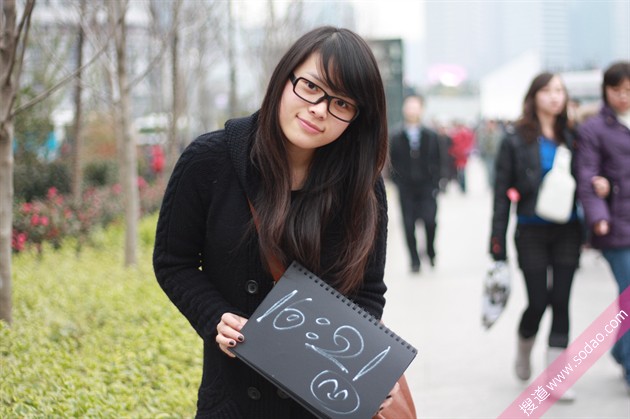 16:21
搜道 www.sodao.com